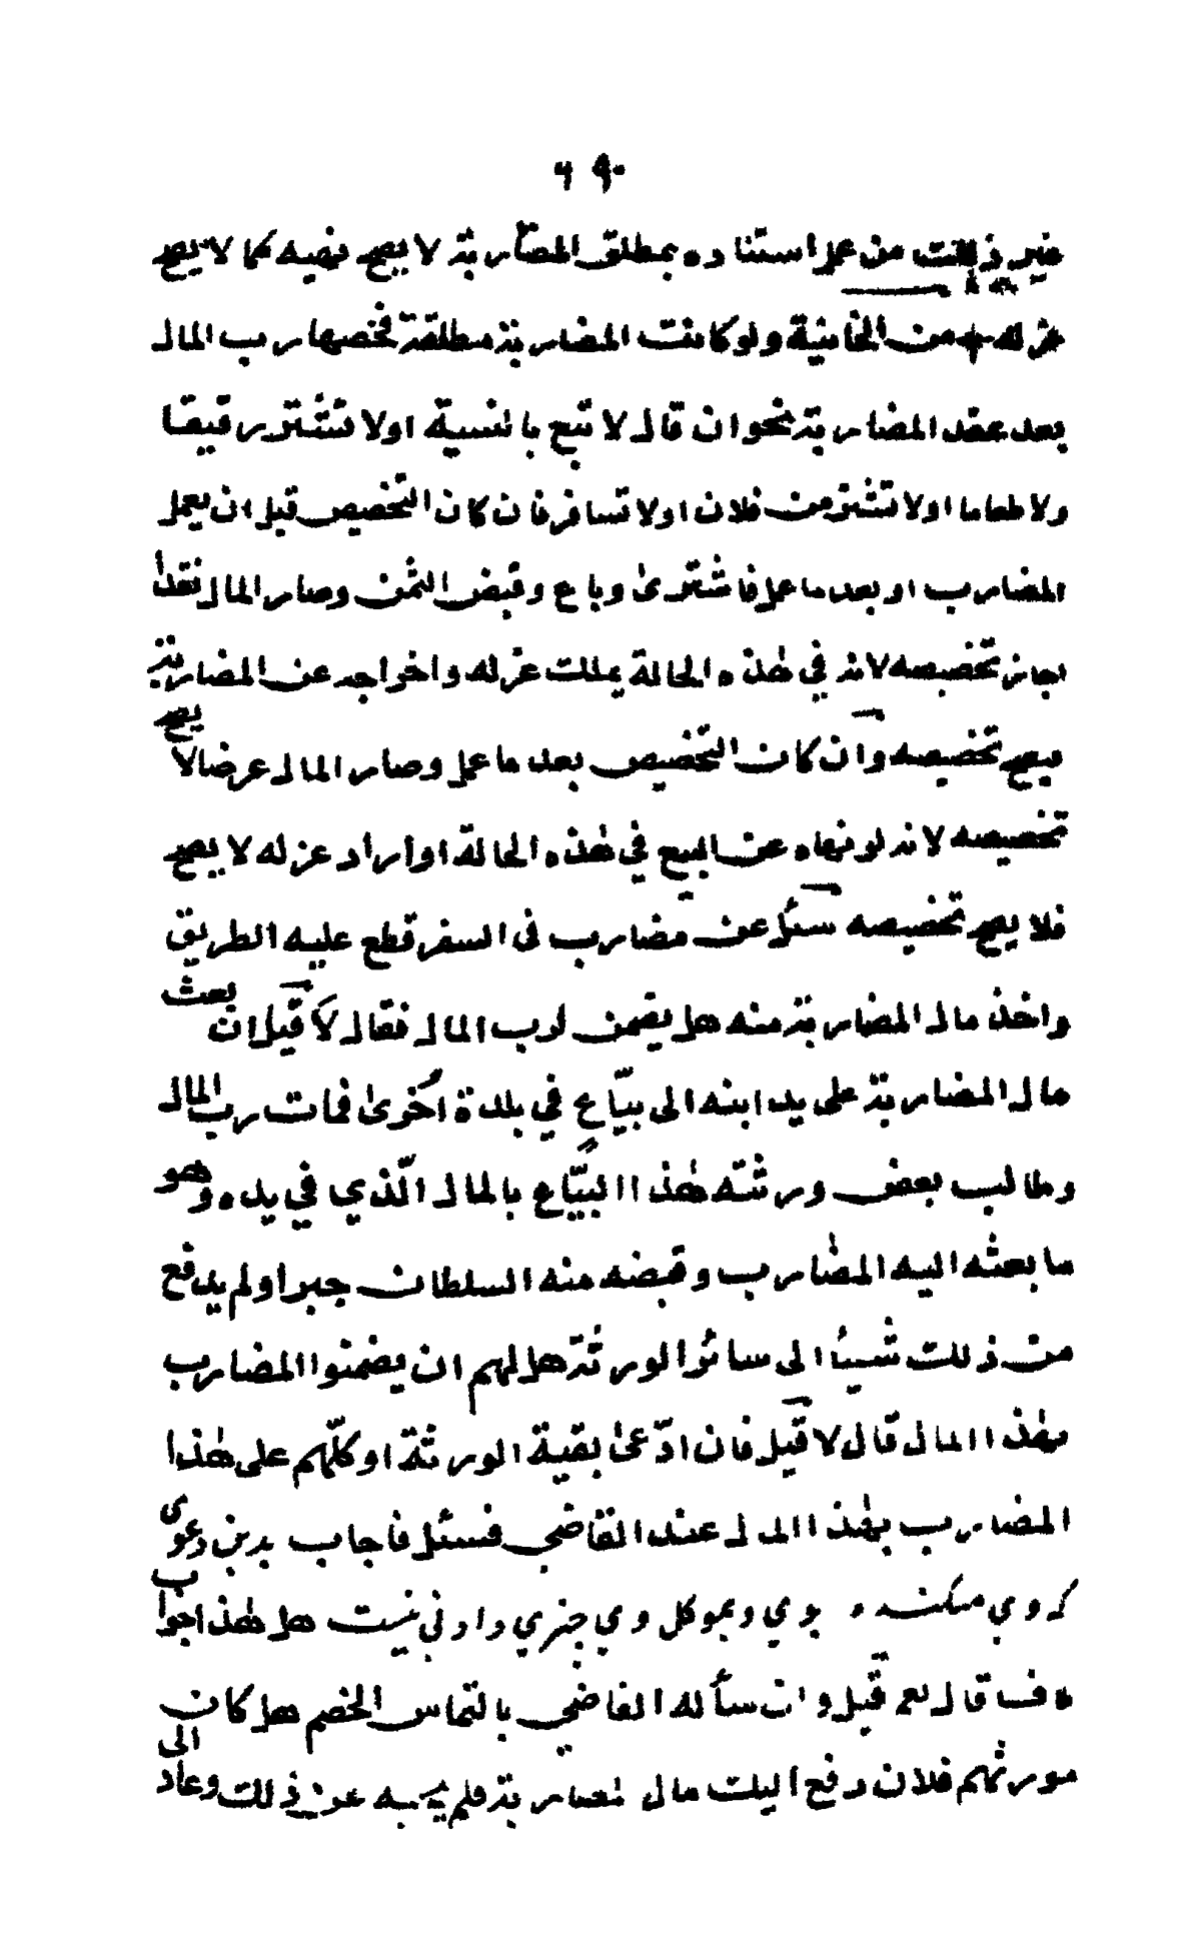 ٦٩٠
غير ذلك من عمل استناده بمطلق المضاربة لا يصح نهيه كما لا يصح
عزله من الخانية ولو كانت المضاربة مطلقة فخصها رب المال
بعد عقد المضاربة نحو ان قال لا تبع بالنسية او لا تشتر رقيقا
ولا طعاما او لا تشتر من فلان او لا تسافر فان كان التخصيص قبل ان يعمل
المضارب او بعد ما عمل فاشترى وباع وقبض الثمن وصار المال نقدا
جاز تخصيصه لانه في هذه الحالة يملك عزله واخراجه عن المضاربة
فيصح تخصيصه وان كان التخصيص بعد ما عمل وصار المال عرضا لا يصح
تخصيصه لانه لو نهاه عن البيع في هذه الحالة او اراد عزله لا يصح
فلا يصح تخصيصه سئل عن مضارب فى السفر قطع عليه الطريق
واخذ مال المضاربة منه هل يضمن لرب المال فقال لا قيل ان بعث
مال المضاربة على يد ابنه الى بيّاعٍ في بلدة اُخرىٰ فمات رب المال
وطالب بعض ورثته هٰذا البيّاع بالمال الّذي في يده وهو
ما بعثه اليه المضارب وقبضه منه السلطان جبرا ولم يدفع
من ذلك شيئا الى سائر الورثة هل لهم ان يضمنوا المضارب
بهٰذا المال قال لا قيل فان ادّعىٰ بقية الورثة او كلّهم على هٰذا
المضارب بهٰذا المال عند القاضي فسئل فاجاب بدين دعوى
كه وي ميكند بوي وبموكل وي چيزي دادني نيست هل هٰذا جواب
قال نعم قيل وان سأله القاضي بالتماس الخصم هل كان
مورثهم فلان دفع اليك مال مضاربة فلم يجبه عن ذلك وعاد الى